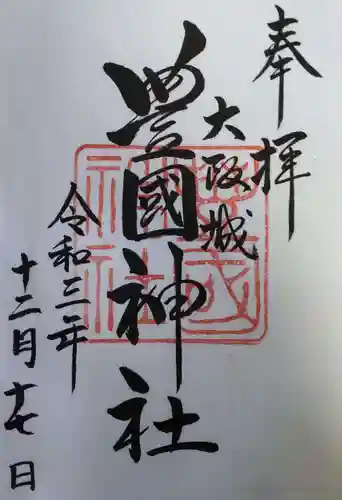 奉拝
大阪城
豊國神社
令和三年
十二月十七日